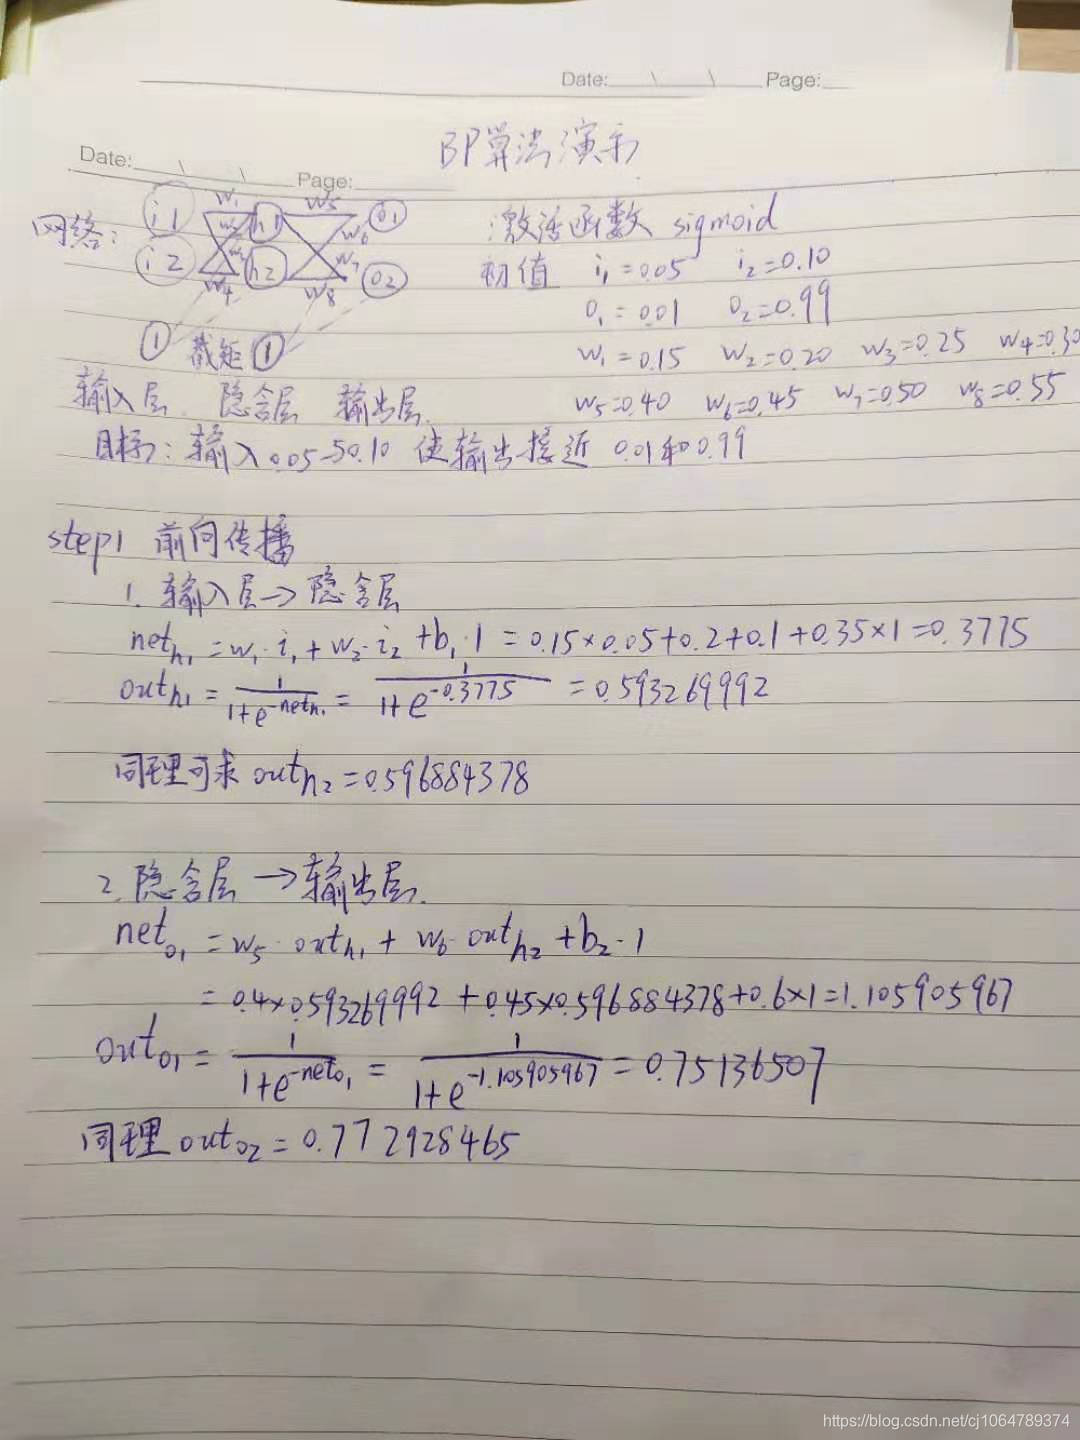 Date: \ \ Page:
BP算法演示
Date: \ \ Page:
网络:
i1 w1 w2 h1 w5 w6 o1
i2 w3 w4 h2 w7 w8 o2
1 截矩 1
输入层. 隐含层 输出层.
激活函数 sigmoid
初值 i₁=0.05 i₂=0.10
o₁=0.01 o₂=0.99
w₁=0.15 w₂=0.20 w₃=0.25 w₄=0.30
w₅=0.40 w₆=0.45 w₇=0.50 w₈=0.55
目标: 输入0.05 50.10 使输出接近 0.01和0.99
step1 前向传播
1. 输入层→隐含层
net_h₁ = w₁·i₁ + w₂·i₂ + b₁·1 = 0.15×0.05+0.2+0.1+0.35×1=0.3775
out_h₁ = 1/(1+e^(-net_h₁)) = 1/(1+e^(-0.3775)) = 0.593269992
同理可求 out_h₂ = 0.596884378
2. 隐含层→输出层.
net_o₁ = w₅·out_h₁ + w₆·out_h₂ + b₂·1
= 0.4×0.593269992 + 0.45×0.596884378+0.6×1=1.105905967
out_o₁ = 1/(1+e^(-net_o₁)) = 1/(1+e^(-1.105905967)) = 0.75136507
同理 out_o₂ = 0.772928465
https://blog.csdn.net/cj1064789374